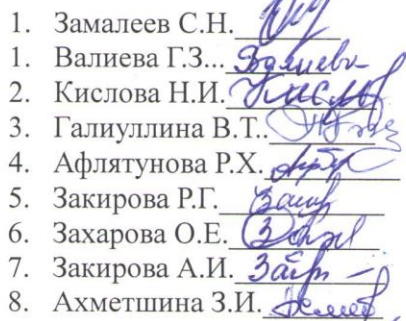 1. Замалеев С.Н.
1. Валиева Г.З... Валиева
2. Кислова Н.И.
3. Галиуллина В.Т..
4. Афлятунова Р.Х.
5. Закирова Р.Г.
6. Захарова О.Е.
7. Закирова А.И.
8. Ахметшина З.И.